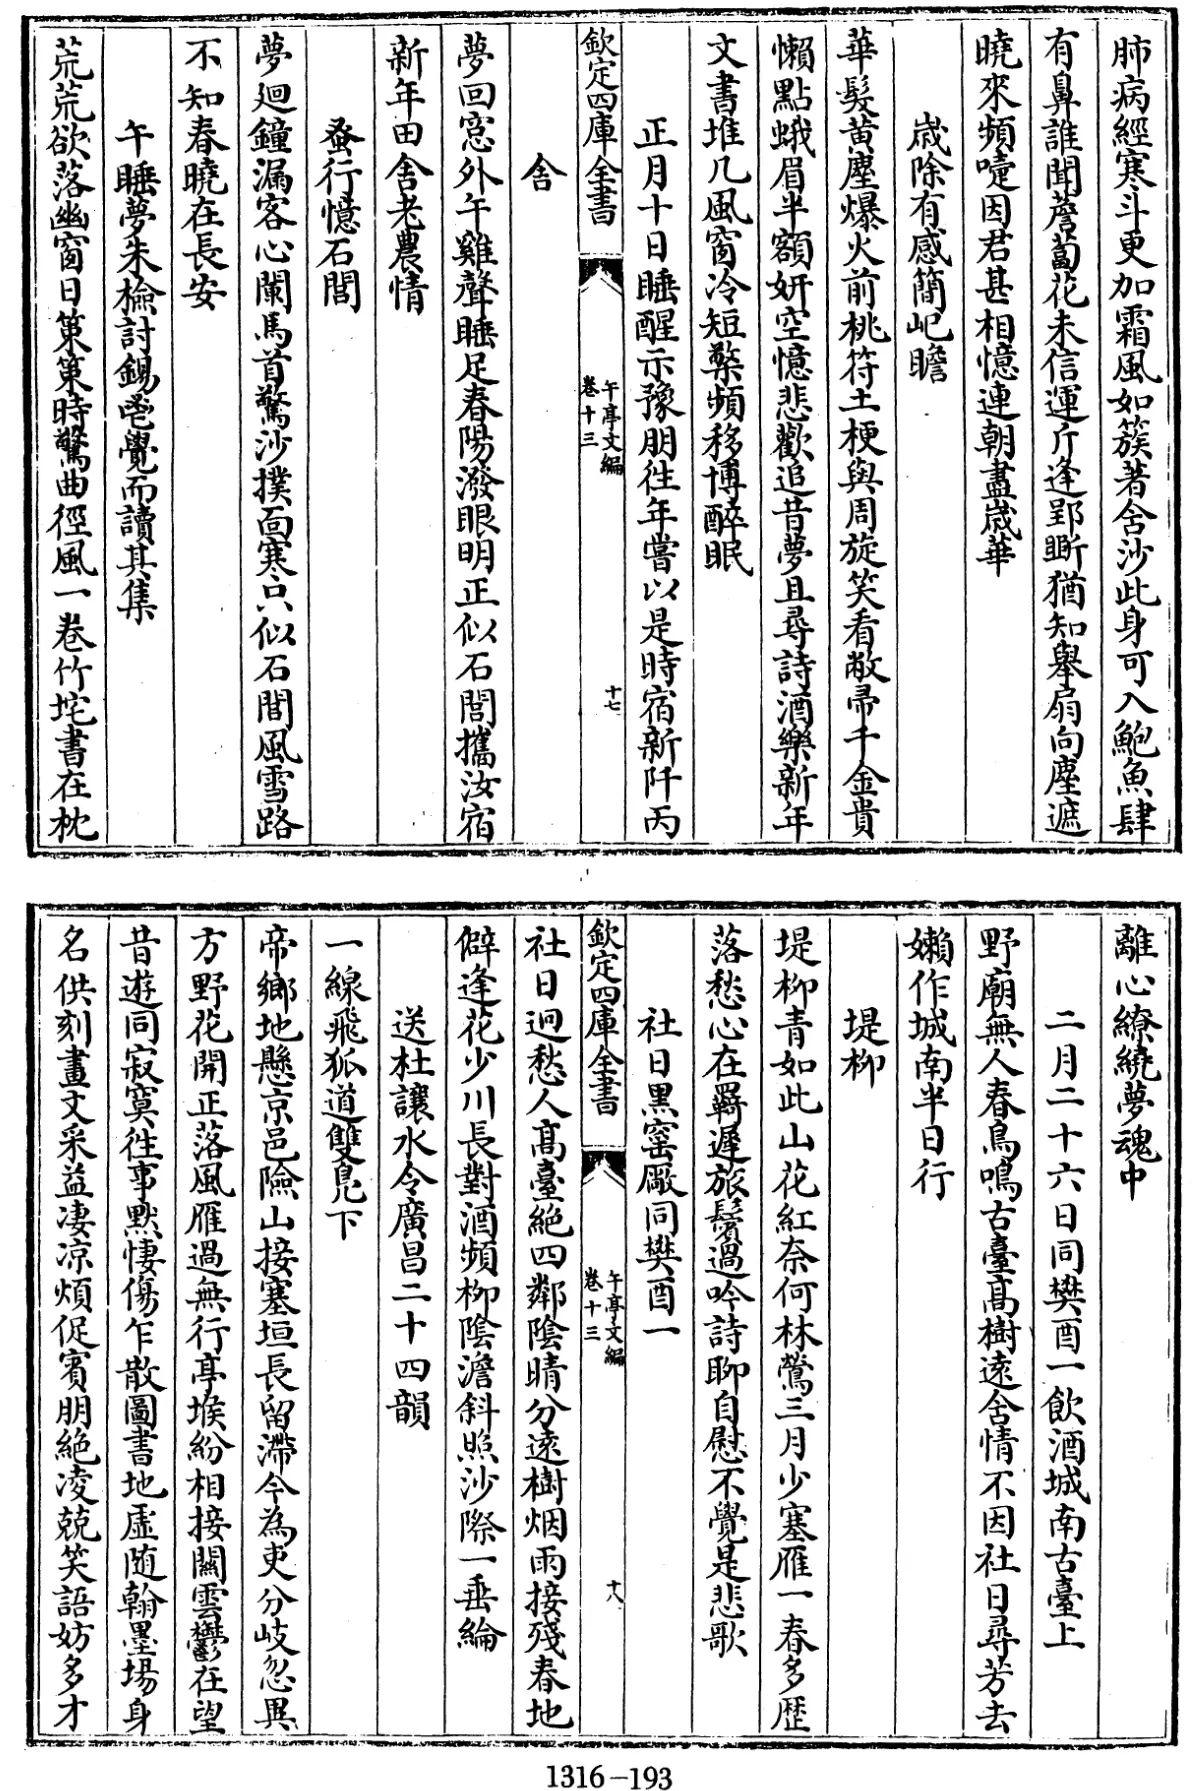 肺病經寒斗更加霜風如簇著含沙此身可入鮑魚肆
有鼻誰聞薝蔔花未信運斤逢郢斵猶知舉扇向塵遮
曉來頻嚏因君甚相憶連朝盡歲華
歲除有感簡屺瞻
華髮黄塵爆火前桃符土梗與周旋笑看敝帚千金貴
懶點蛾眉半額妍空憶悲歡追昔夢且尋詩酒樂新年
文書堆几風窗冷短檠頻移博醉眠
正月十日睡醒示豫朋往年嘗以是時宿新阡丙
欽定四庫全書
午亭文編
卷十三
十七
舍
夢回窓外午雞聲睡足春陽潑眼明正似石閭攜汝宿
新年田舍老農情
蚤行憶石閭
夢迴鐘漏客心闌馬首驚沙撲面寒只似石閭風雪路
不知春曉在長安
午睡夢朱檢討錫鬯覺而讀其集
荒荒欲落幽窗日策策時驚曲徑風一卷竹垞書在枕
離心繚繞夢魂中
二月二十六日同樊酉一飲酒城南古臺上
野廟無人春鳥鳴古臺高樹遠含情不因社日尋芳去
嬾作城南半日行
堤柳
堤柳青如此山花紅奈何林鶯三月少塞雁一春多歴
落愁心在羇遲旅鬢過吟詩聊自慰不覺是悲歌
社日黑窑厰同樊酉一
欽定四庫全書
午亭文編
卷十三
十八
社日迥愁人高臺絶四鄰陰晴分遠樹烟雨接殘春地
僻逢花少川長對酒頻柳陰澹斜照沙際一垂綸
送杜讓水令廣昌二十四韻
一線飛狐道雙鳬下
帝鄉地懸京邑險山接塞垣長留滯今為吏分岐忽異
方野花開正落風雁過無行亭堠紛相接關雲鬱在望
昔遊同寂寞往事黙悽傷乍散圖書地虛随翰墨場身
名供刻畫文采益凄凉煩促賓朋絶凌兢笑語妨多才
1316-193